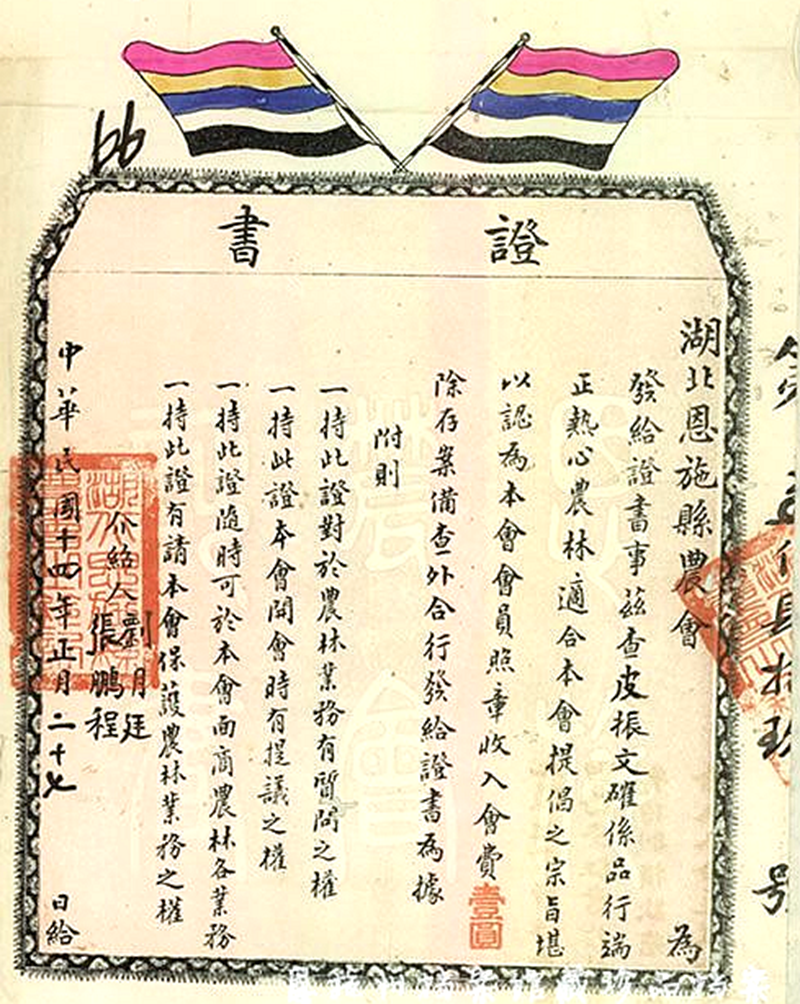 66
證書
湖北恩施縣農會　為
發給證書事茲查皮振文確係品行端
正熱心農林適合本會提倡之宗旨堪
以認為本會會員照章收入會費壹圓
除存案備查外合行發給證書為據
附則
一持此證對於農林業務有質問之權
一持此證本會開會時有提議之權
一持此證隨時可於本會面商農林各業務
一持此證有請本會保護農林業務之權
介紹人劉月廷
張鵬程
中華民國十四年正月二十七日給